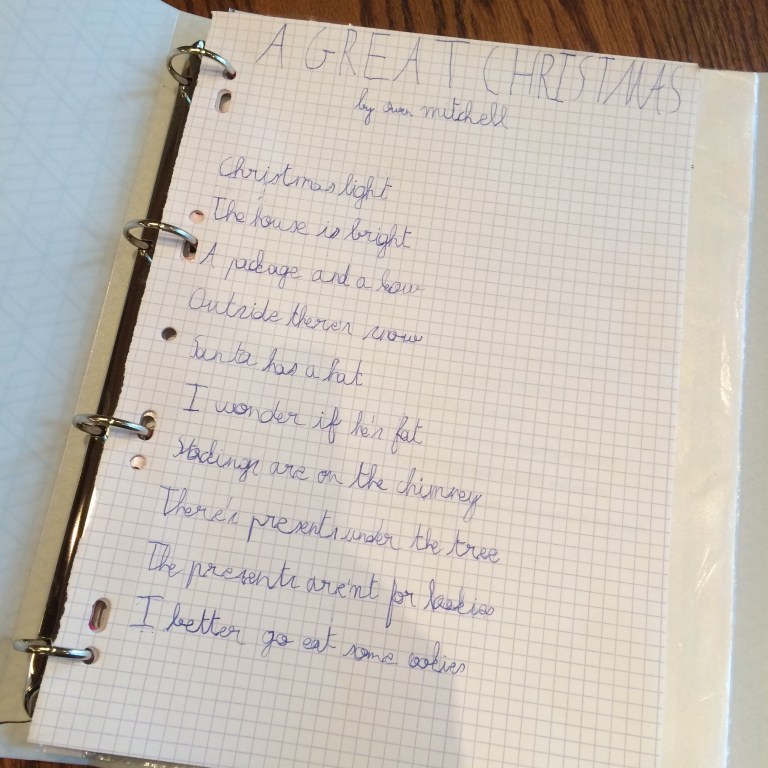 A GREAT CHRISTMAS
by owen mitchell
Christmas light
The house is bright
A package and a bow
Outside there's snow
Santa has a hat
I wonder if he's fat
Stockings are on the chimney
There's presents under the tree
The presents are'nt for lookies
I better go eat some cookies